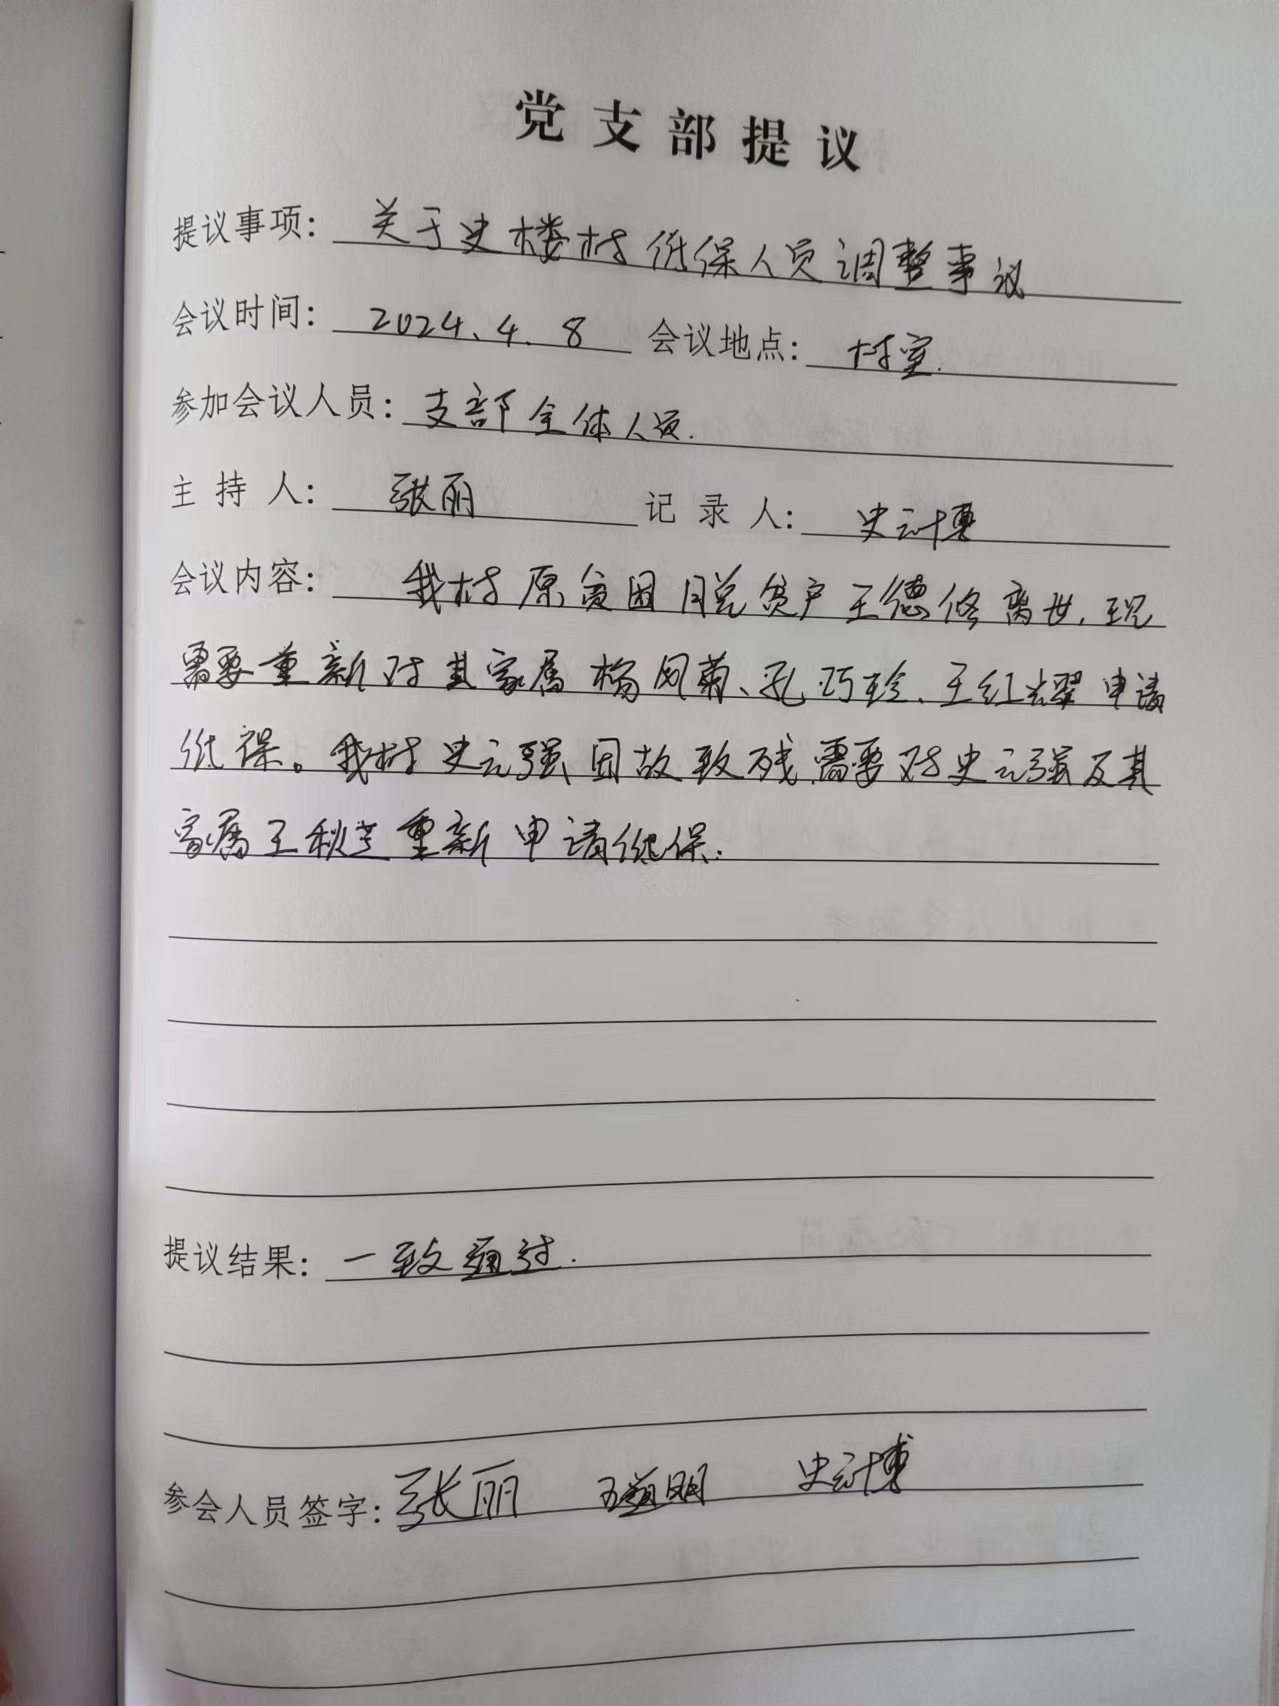 党支部提议
提议事项: 关于史楼村低保人员调整事议
会议时间: 2024.4.8 会议地点: 村室.
参加会议人员: 支部全体人员.
主持人: 张丽 记录人: 史云博
会议内容: 我村原贫困脱贫户王德修离世,现
需要重新对其家属杨凤菊、孔巧珍、王红耀申请
低保。我村史元强因故致残,需要对史元强及其
家属王秋芝重新申请低保.
提议结果: 一致通过.
参会人员签字: 张丽 史云博